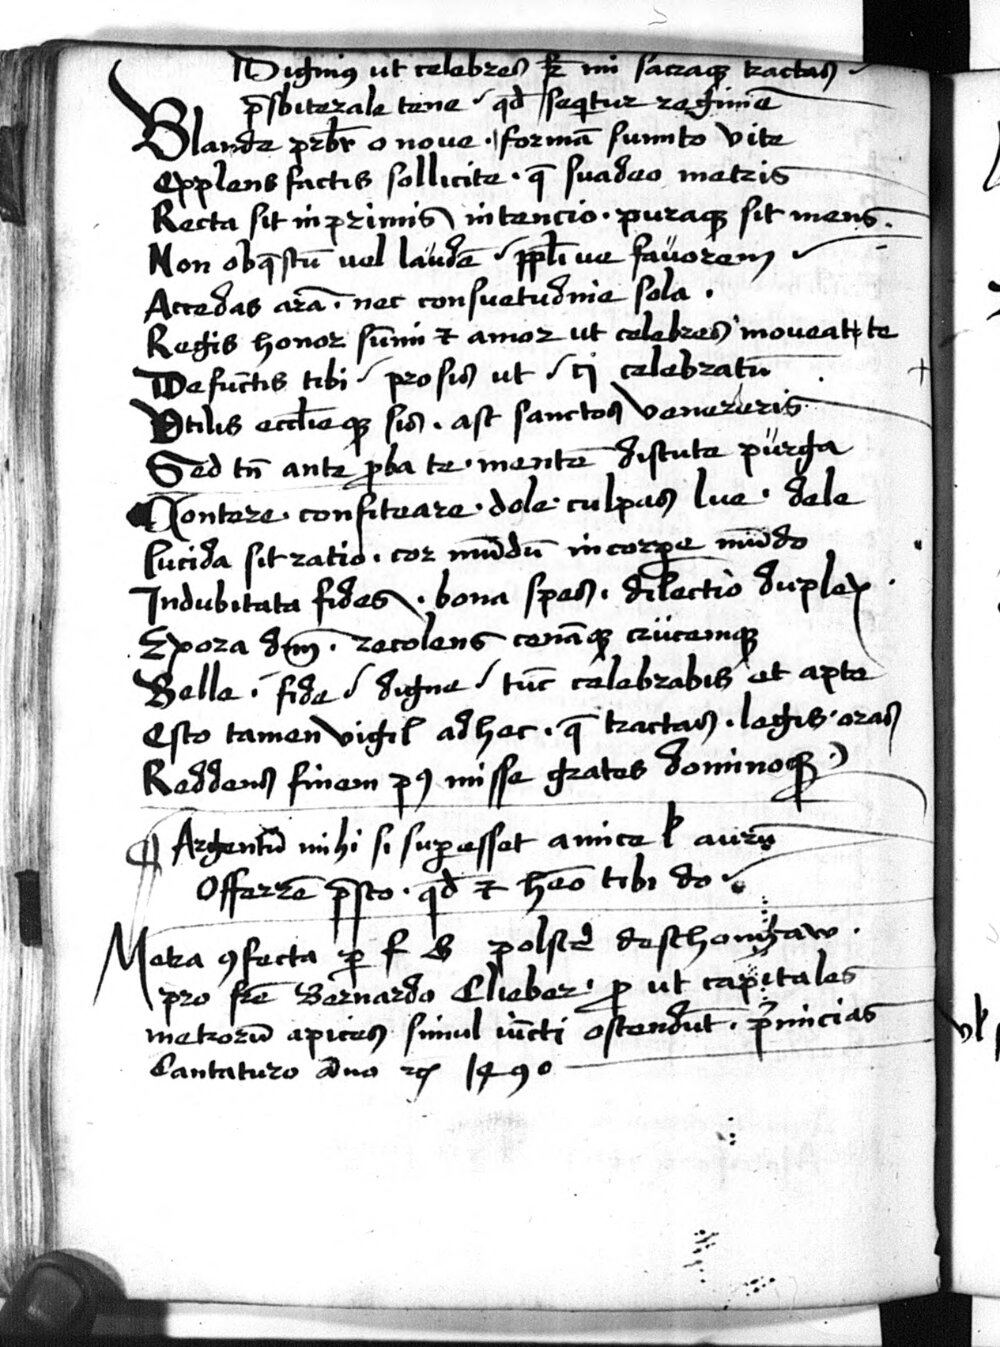 Dignius ut celebres kr̄ mi sacraq̄ tractas
p̄sbiterale tene qd̄ seqͥtur regimē
Blande prb̄r o noue · formā sumito vite
Expplens factis sollicite · q̄ suadeo metris
Recta sit inprimis intencio · puraq̄ sit mens
Non ob q̄stū uel laudē ppl̄i ue fauorem
Accedas arā · nec consuetudnie sola ·
Regis honor sūmi et amor ut celebres moveat te
Defūctis tibi prosis ut celebratū
Vtilis eccl̄ieq̄ sis · ast sanctos venereris
Sed tn̄ ante p̄ba te · mentē discute purga
Contere · confiteare · dole · culpas lue · dele
Lucida sit ratio · cor mūdū in corpe mūdo
Indubitata fides · bona spes · dilectio duplex ·
Expora dn̄m · recolens cenāq̄ crucemq̄
Belle · fide digne tūc celebrabis et apte
Esto tamen vigil adhec · q̄ tractas · legis · oras
Reddens finem pꝰ misse grates dominoq̄
¶ Argentū mihi si supesset amice l̄ aurū
Offerrē p̄sto · qd̄ et heo tibi do ·
Metra ꝯfecta p f B polster de schongaw ·
pro fr̄e Bernardo Clieber · pro ut capitales
metrorū apices simul iūcti ostendūt · p̄micias
Cantaturo āno 1490